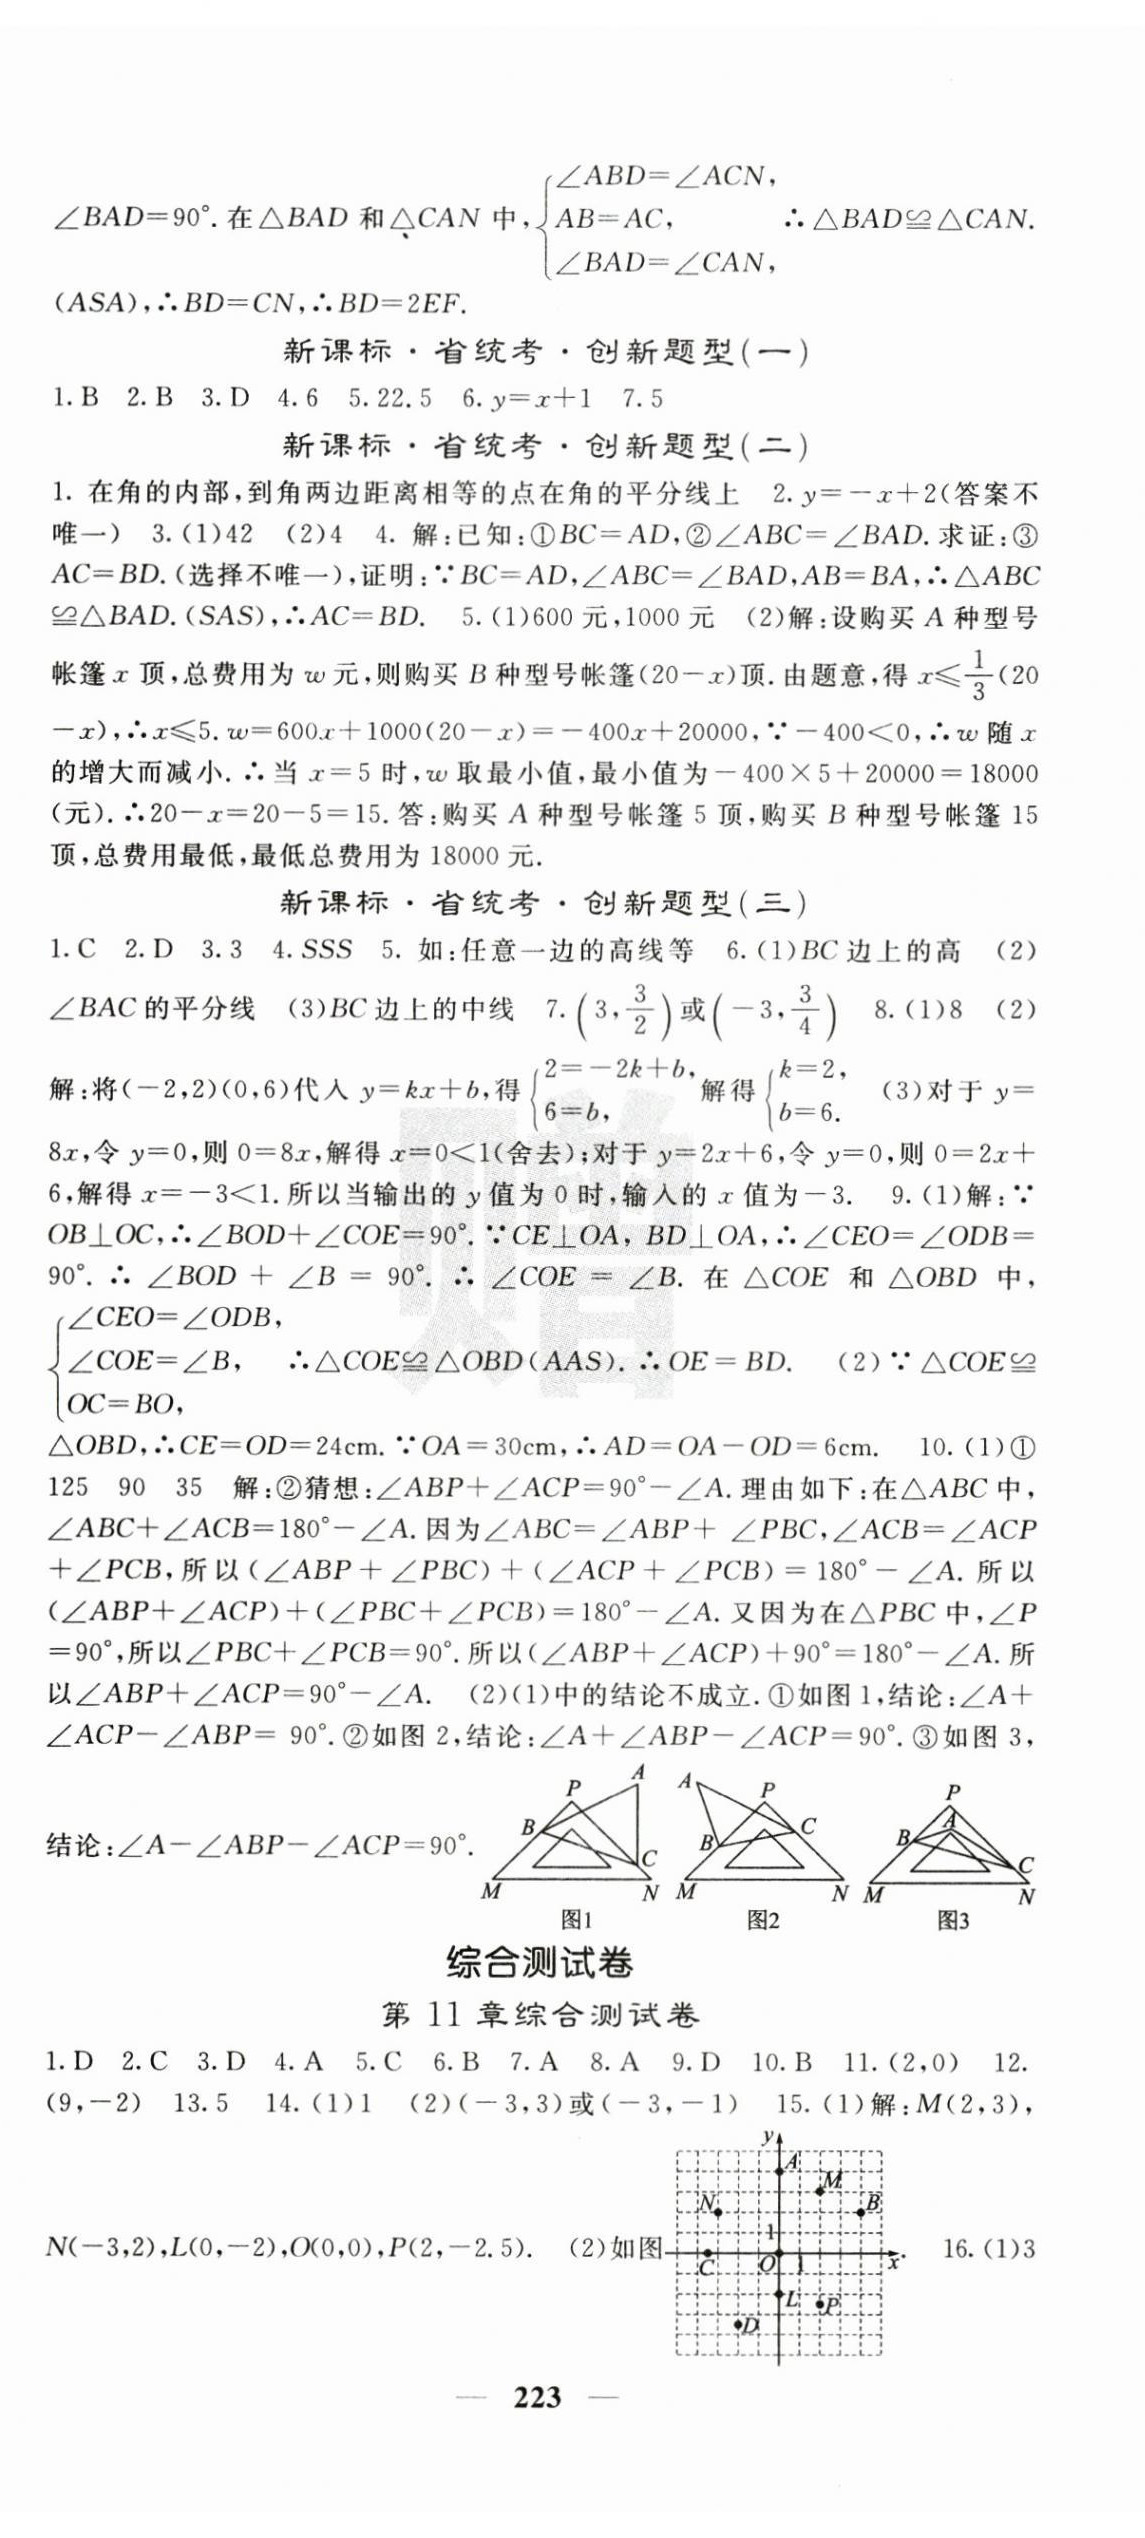 ∠BAD=90°.在△BAD 和△CAN 中,{∠ABD=∠ACN, AB=AC, ∠BAD=∠CAN, ∴△BAD≌△CAN.
(ASA),∴BD=CN,∴BD=2EF.
新课标·省统考·创新题型(一)
1.B 2.B 3.D 4.6 5.22.5 6.y=x+1 7.5
新课标·省统考·创新题型(二)
1. 在角的内部,到角两边距离相等的点在角的平分线上 2.y=-x+2(答案不
唯一) 3.(1)42 (2)4 4. 解:已知:①BC=AD,②∠ABC=∠BAD.求证:③
AC=BD.(选择不唯一),证明:∵BC=AD,∠ABC=∠BAD,AB=BA,∴△ABC
≌△BAD.(SAS),∴AC=BD. 5.(1)600 元,1000 元 (2)解:设购买 A 种型号
帐篷 x 顶,总费用为 w 元,则购买 B 种型号帐篷(20-x)顶.由题意,得 x≤1/3(20
-x),∴x≤5.w=600x+1000(20-x)=-400x+20000,∵-400<0,∴w 随 x
的增大而减小.∴当 x=5 时,w 取最小值,最小值为-400×5+20000=18000
(元).∴20-x=20-5=15.答:购买 A 种型号帐篷 5 顶,购买 B 种型号帐篷 15
顶,总费用最低,最低总费用为 18000 元.
新课标·省统考·创新题型(三)
1.C 2.D 3.3 4.SSS 5. 如:任意一边的高线等 6.(1)BC 边上的高 (2)
∠BAC 的平分线 (3)BC 边上的中线 7.(3,3/2)或(-3,3/4) 8.(1)8 (2)
解:将(-2,2)(0,6)代入 y=kx+b,得{2=-2k+b, 6=b, 解得{k=2, b=6. (3)对于 y=
8x,令 y=0,则 0=8x,解得 x=0<1(舍去);对于 y=2x+6,令 y=0,则 0=2x+
6,解得 x=-3<1.所以当输出的 y 值为 0 时,输入的 x 值为-3. 9.(1)解:∵
OB⊥OC,∴∠BOD+∠COE=90°.∵CE⊥OA, BD⊥OA,∴∠CEO=∠ODB=
90°.∴ ∠BOD + ∠B = 90°.∴ ∠COE = ∠B. 在 △COE 和 △OBD 中,
{∠CEO=∠ODB,
∠COE=∠B, ∴△COE≌△OBD(AAS).∴OE=BD. (2)∵△COE≌
OC=BO,
△OBD,∴CE=OD=24cm.∵OA=30cm,∴AD=OA-OD=6cm. 10.(1)①
125 90 35 解:②猜想:∠ABP+∠ACP=90°-∠A.理由如下:在△ABC 中,
∠ABC+∠ACB=180°-∠A.因为∠ABC=∠ABP+ ∠PBC,∠ACB=∠ACP
+∠PCB,所以(∠ABP+∠PBC)+(∠ACP+∠PCB)=180°-∠A.所以
(∠ABP+∠ACP)+(∠PBC+∠PCB)=180°-∠A.又因为在△PBC 中,∠P
=90°,所以∠PBC+∠PCB=90°.所以(∠ABP+∠ACP)+90°=180°-∠A.所
以∠ABP+∠ACP=90°-∠A. (2)(1)中的结论不成立.①如图 1,结论:∠A+
∠ACP-∠ABP= 90°.②如图 2,结论:∠A+∠ABP-∠ACP=90°.③如图 3,
结论:∠A-∠ABP-∠ACP=90°.
P A B C M N
A P B C M N
P A B C M N
图1 图2 图3
综合测试卷
第 11 章综合测试卷
1.D 2.C 3.D 4.A 5.C 6.B 7.A 8.A 9.D 10.B 11.(2,0) 12.
(9,-2) 13.5 14.(1)1 (2)(-3,3)或(-3,-1) 15.(1)解:M(2,3),
N(-3,2),L(0,-2),O(0,0),P(2,-2.5). (2)如图 . 16.(1)3
y A M N B 1 C O 1 x L P D
— 223 —
赠